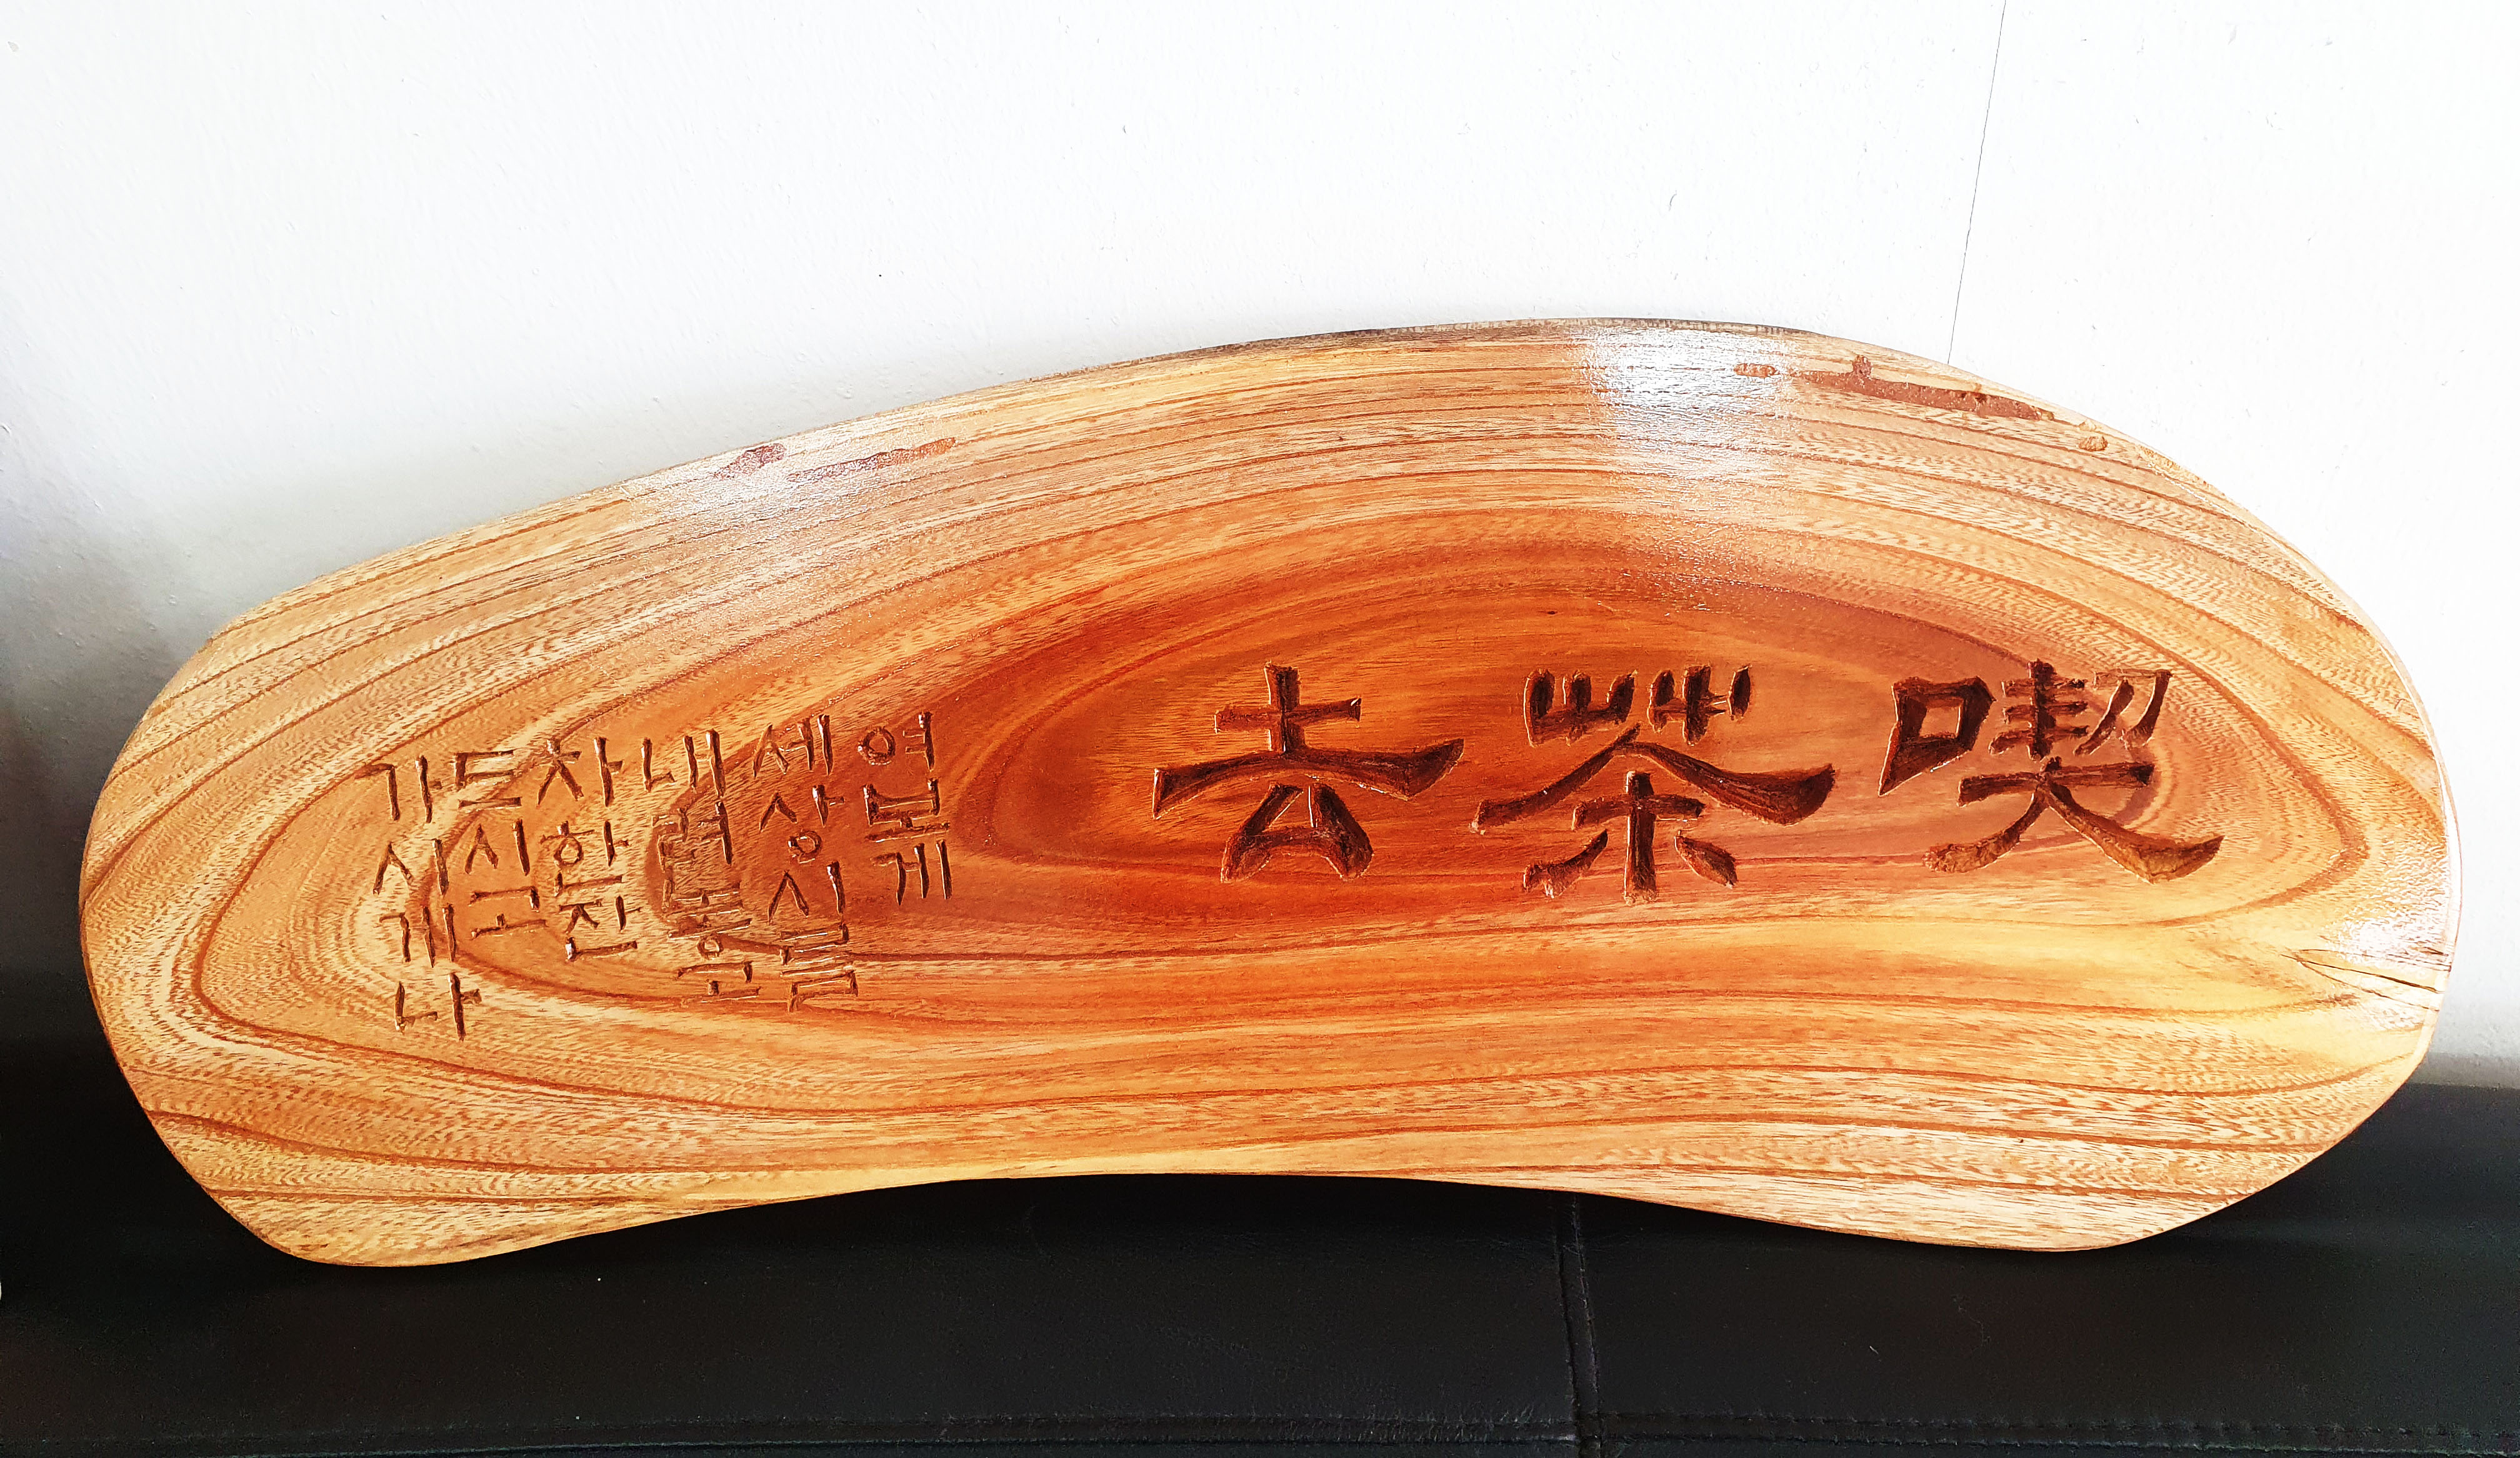 喫茶去
여보게
세상시름
내려놓고
차한잔
드시고
가시게나